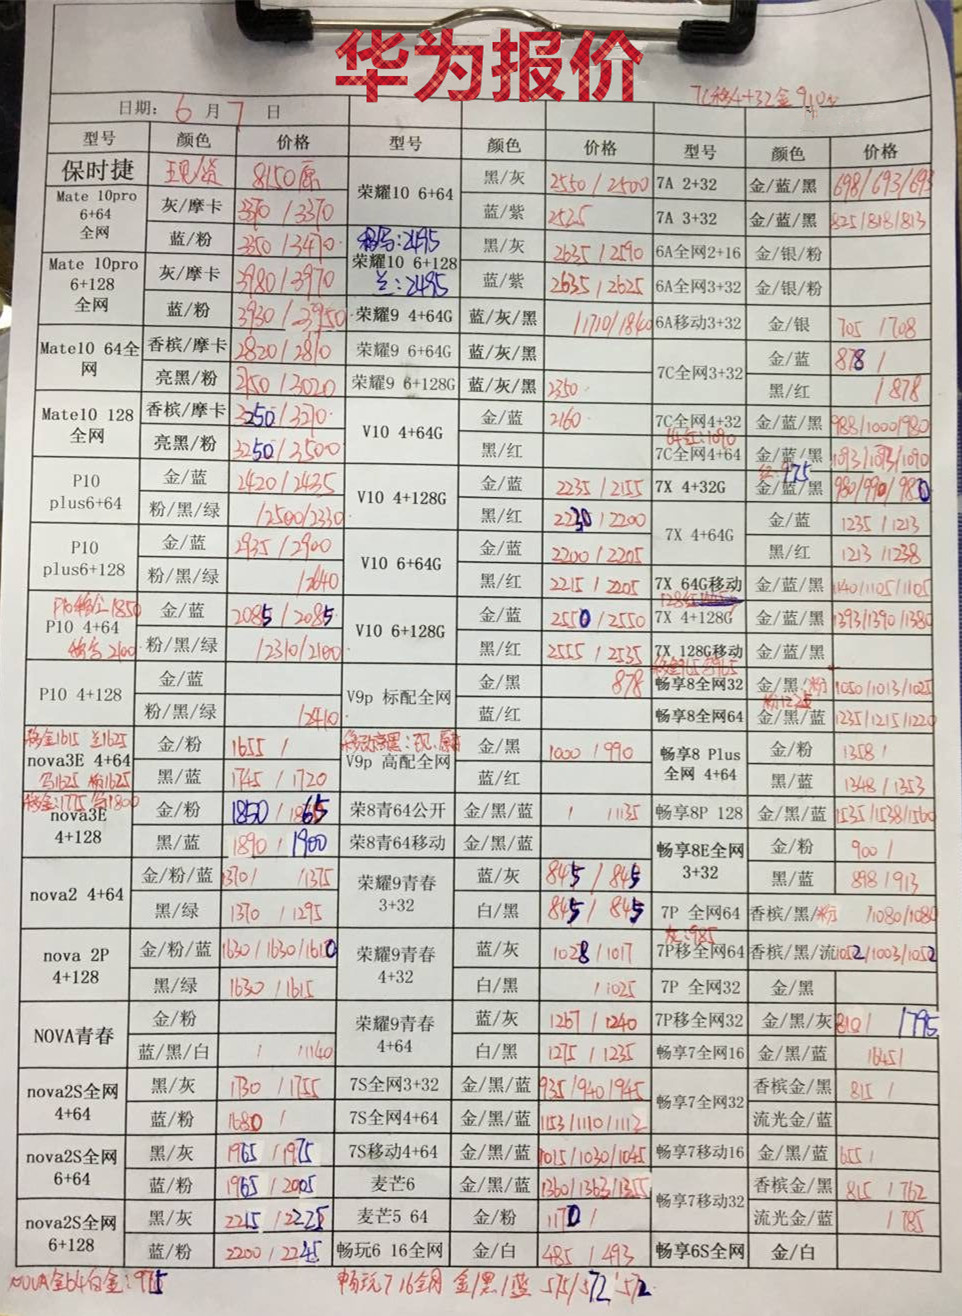 华为报价
7C移4+32金910
日期: 6 月 7 日
型号 颜色 价格 型号 颜色 价格 型号 颜色 价格
保时捷 现/货 8150原
Mate 10pro 6+64 全网 灰/摩卡 3370/3370
蓝/粉 3350/3470
Mate 10pro 6+128 全网 灰/摩卡 3980/3970
蓝/粉 3930/3950
Mate10 64全网 香槟/摩卡 2820/2810
亮黑/粉 /3020
Mate10 128 全网 香槟/摩卡 3250/3210
亮黑/粉 3250/3500
P10 plus6+64 金/蓝 2420/2435
粉/黑/绿 /2500/2330
P10 plus6+128 金/蓝 2935/2900
粉/黑/绿 /2640
P10 4+64 金/蓝 2085/2085
粉/黑/绿 /2310/2100
P10 4+128 金/蓝
粉/黑/绿 /2410
移金1615 兰1625
nova3E 4+64 金/粉 1655/
黑/蓝 1745/1720
nova3E 4+128 金/粉 1850/1865
黑/蓝 1890/1900
nova2 4+64 金/粉/蓝 1370/ /1375
黑/绿 1370/1295
nova 2P 4+128 金/粉/蓝 1630/1630/1610
黑/绿 1630/1615
NOVA青春 金/粉
蓝/黑/白 / /1140
nova2S全网 4+64 黑/灰 1730/1755
蓝/粉 1680/
nova2S全网 6+64 黑/灰 1965/1975
蓝/粉 1965/2005
nova2S全网 6+128 黑/灰 2215/2225
蓝/粉 2200/2245
荣耀10 6+64 黑/灰 2550/2500
蓝/紫 2525
荣耀10 6+128 黑/灰 2635/2590
兰:2495 蓝/紫 2635/2625
荣耀9 4+64G 蓝/灰/黑 /1710/1840
荣耀9 6+64G 蓝/灰/黑
荣耀9 6+128G 蓝/灰/黑 2350
V10 4+64G 金/蓝 2160
黑/红
V10 4+128G 金/蓝 2235/2155
黑/红 2230/2200
V10 6+64G 金/蓝 2200/2205
黑/红 2215/2205
V10 6+128G 金/蓝 2550/2550
黑/红 2555/2535
V9p 标配全网 金/黑 878
蓝/红
V9p 高配全网 金/黑 1000/990
蓝/红
荣8青64公开 金/黑/蓝 / /1135
荣8青64移动 金/黑/蓝
荣耀9青春 3+32 蓝/灰 845/845
白/黑 845/845
荣耀9青春 4+32 蓝/灰 1028/1017
白/黑 /1025
荣耀9青春 4+64 蓝/灰 1267/1240
白/黑 1275/1235
7S全网3+32 金/黑/蓝 935/940/945
7S全网4+64 金/黑/蓝 1153/1110/1112
7S移动4+64 金/黑/蓝 1015/1030/1045
麦芒6 金/黑/蓝 1360/1363/1355
麦芒5 64 金/粉 1170/
畅玩6 16全网 金/白 485/493
7A 2+32 金/蓝/黑 698/693/693
7A 3+32 金/蓝/黑 825/818/813
6A全网2+16 金/银/粉
6A全网3+32 金/银/粉
6A移动3+32 金/银 705/708
7C全网3+32 金/蓝 878/
黑/红 /878
7C全网4+32 金/蓝/黑 988/1000/980
7C全网4+64 金/蓝/黑 1093/1093/1090
7X 4+32G 金/蓝/黑 980/990/980
7X 4+64G 金/蓝 1235/1213
黑/红 1213/1238
7X 64G移动 金/蓝/黑 1140/1105/1105
7X 4+128G 金/蓝/黑 1393/1390/1380
7X 128G移动 金/蓝/黑
畅享8全网32 金/黑/粉 1050/1013/1025
粉1225
畅享8全网64 金/黑/蓝 1235/1215/1220
畅享8 Plus 全网 4+64 金/粉 1358/
黑/蓝 1348/1353
畅享8P 128 金/黑/蓝 1535/1538/1500
畅享8E全网 3+32 金/粉 900/
黑/蓝 898/913
7P 全网64 香槟/黑/粉 /1080/1080
7P移全网64 香槟/黑/流 1052/1003/1052
7P 全网32 金/黑
7P移全网32 金/黑/灰 810/ 1795
畅享7全网16 金/黑/蓝 1645/
畅享7全网32 香槟金/黑 815/
流光金/蓝
畅享7移动16 金/黑/蓝 655/
畅享7移动32 香槟金/黑 815/762
流光金/蓝 /785
畅享6S全网 金/白
NOVA金64白金:975
畅玩7 16全网 金/黑/蓝 575/572/572